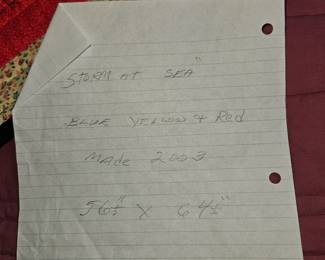 STORM AT SEA"
BLUE YELLOW + Red
MADE 2003
56½" X 64½"